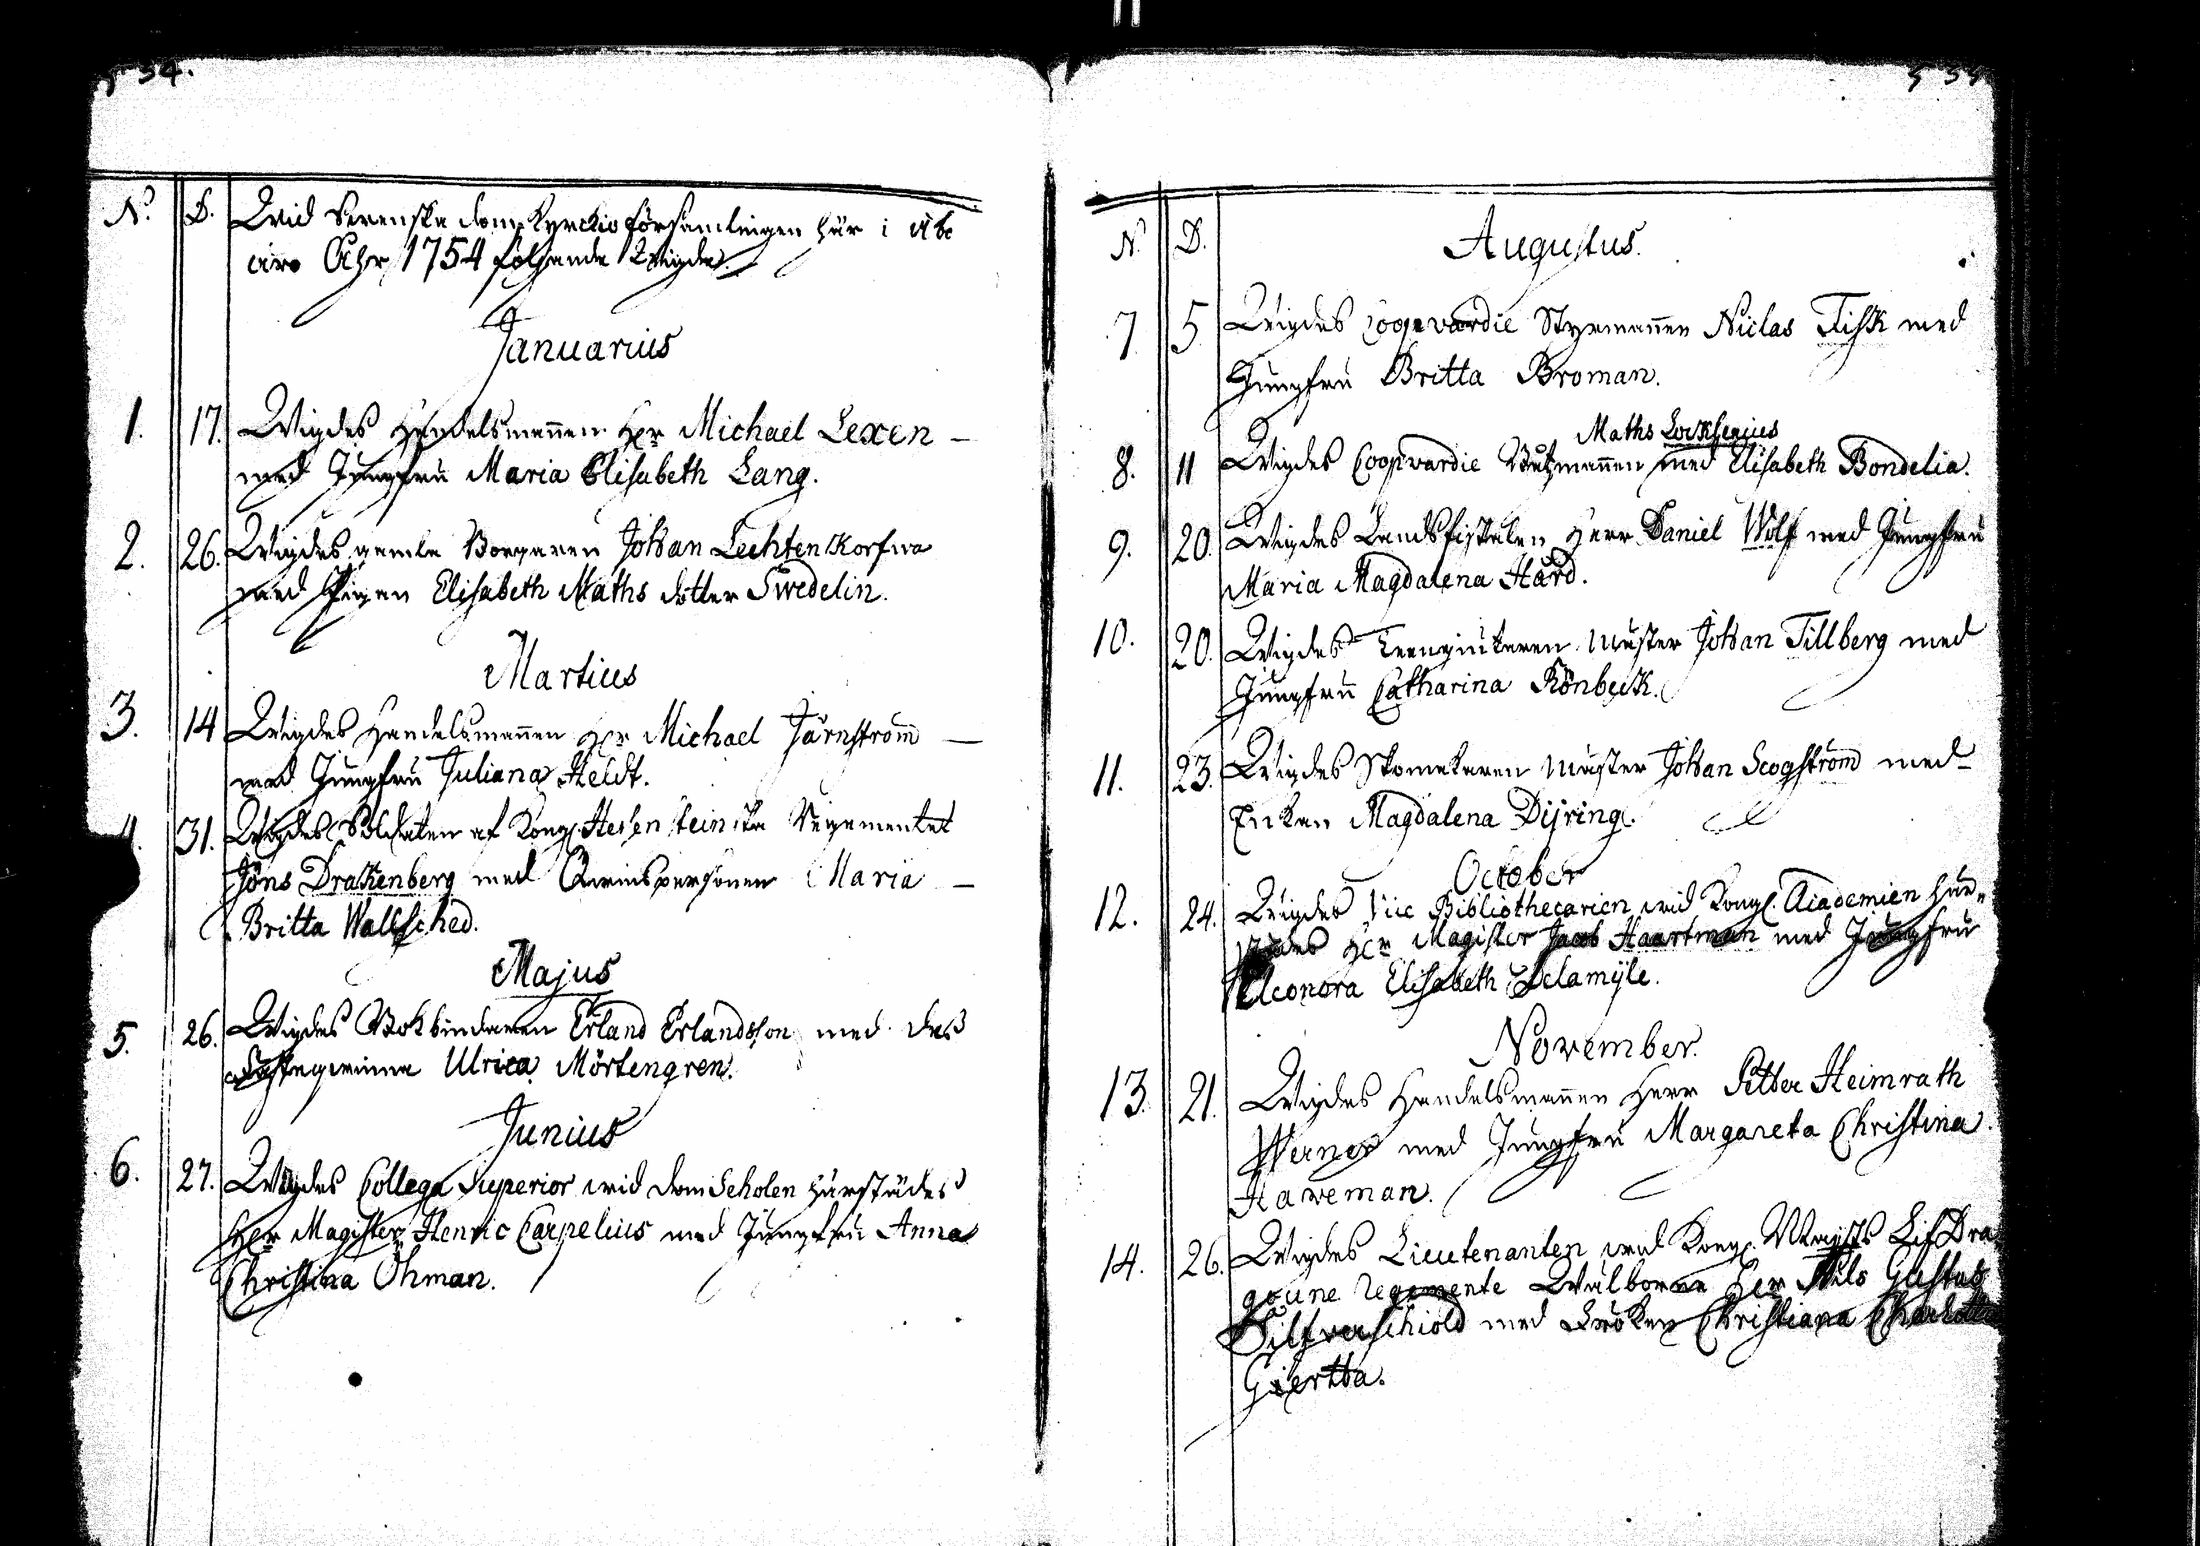 534.
N. D. Wid Svenska domkyrckio församlingen här i Åbo
äro Åhr 1754 följande Wigde.
Januarius
1. 17. Wigdes Handelsmannen Her Michael Lexen
med Jungfru Maria Elisabeth Lang.
2. 26. Wigdes gamla Borgaren Johan Lechtenkorfwa
med Pigan Elisabeth Maths dotter Swedelin.
Martius
3. 14 Wigdes Handelsmannen Her Michael Järnström
med Jungfru Juliana Heldt.
4. 31. Wigdes Soldaten af Kongl. Hessensteinska Regementet
Jöns Drakenberg med Qwinspersonen Maria
Britta Wallsched.
Majus
5. 26. Wigdes Bokbindaren Erland Erlandsson med des
Ulrica Mörtengren.
Junius
6. 27. Wigdes Collega Superior wid dom Scholen härstädes
Her Magister Henric Carpelius med Jungfru Anna
Christina Öhman.
N. D. Augustus.
7. 5 Wigdes Coopvardie Styrmannen Niclas Fisk med
Jungfru Britta Broman.
Maths
8. 11 Wigdes Coopvardie med Elisabeth Bondelia.
9. 20. Wigdes Landsfiskalen Herr Daniel Wolf med Jungfru
Maria Magdalena Hård.
10. 20. Wigdes Tenngiutaren Mäster Johan Tillberg med
Jungfru Catharina Rönbeck.
11. 23. Wigdes Skomakaren Mäster Johan Scogström med
Enkan Magdalena Dijring.
October
12. 24. Wigdes Vice Bibliothecarien wid Kongl. Academien här-
städes Her Magister Jacob Haartman med Jungfru
Eleonora Elisabeth Delamÿle.
November.
13. 21. Wigdes Handelsmannen Herr Petter Heimrath
Werner med Jungfru Margareta Christina
Haveman.
14. 26. Wigdes Lieutenanten wid Kongl. Maijts Lif Dra
goune Regemente Wälborne Her Nils Gustaf
Silfverschiöld med Fröken Christiana Charlotta
Giertta.